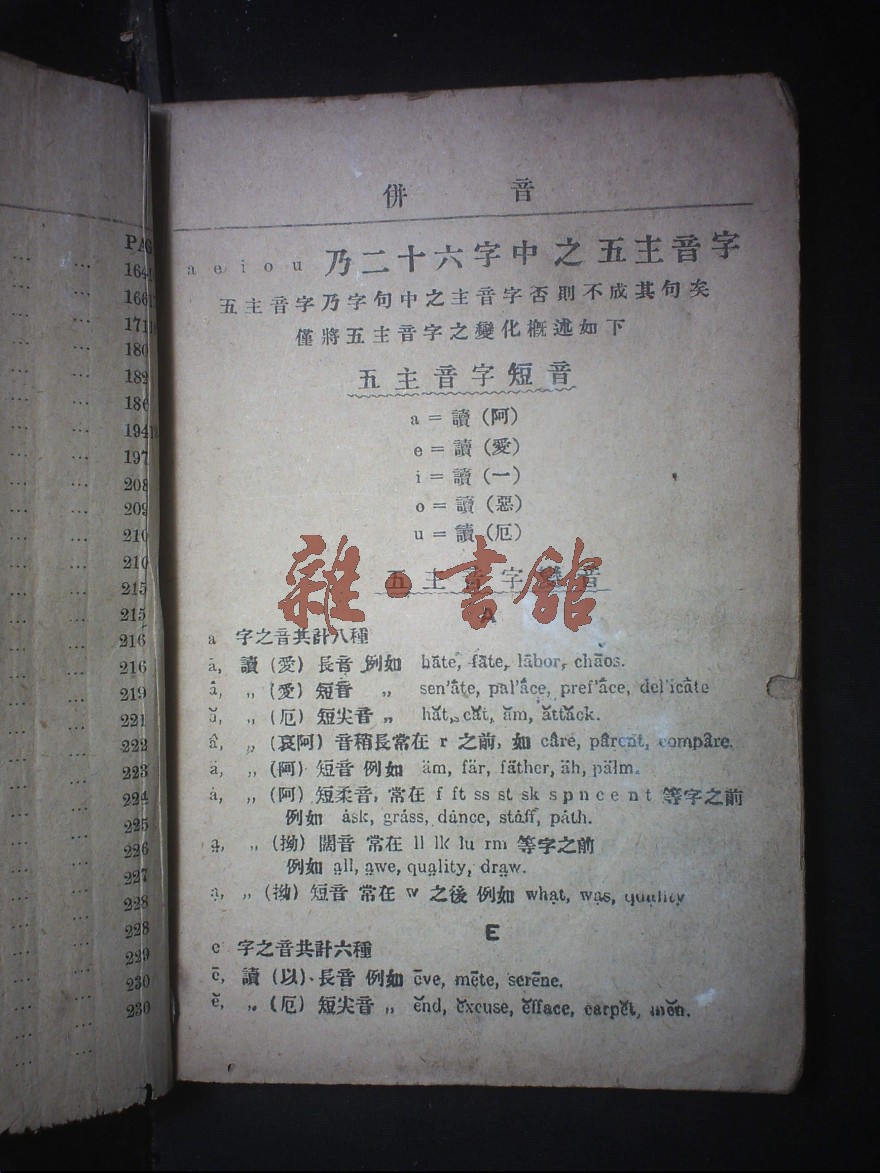 PAG
164
166
171
180
182
186
194
197
208
209
210
210
215
215
216
216
219
221
222
223
224
225
226
227
228
228
229
230
230
併 音
a e i o u 乃二十六字中之五主音字
五主音字乃字句中之主音字否則不成其句矣
僅將五主音字之變化概述如下
五主音字短音
a = 讀 (阿)
e = 讀 (愛)
i = 讀 (一)
o = 讀 (惡)
u = 讀 (厄)
五主音字變音
雜·書館
A
a 字之音共計八種
ā, 讀 (愛) 長音 例如 hāte, fāte, lābor, chāos.
„ (愛) 短音 „ sen'âte, pal'âce, pref'âce, del'icâte
ă, „ (厄) 短尖音 „ hăt, căt, ăm, ăttăck.
â, „ (哀阿) 音稍長常在 r 之前, 如 câre, pârent, compâre.
ä, „ (阿) 短音 例如 äm, fär, fäther, äh, pälm.
ȧ, „ (阿) 短柔音, 常在 f ft ss st sk s p n c e n t 等字之前
例如 ȧsk, grȧss, dȧnce, stȧff, pȧth.
ạ, „ (拗) 闊音 常在 ll lk lu rm 等字之前
例如 ạll, ạwe, quạlity, drạw.
ạ, „ (拗) 短音 常在 w 之後 例如 whạt, wạs, quạlity
E
e 字之音共計六種
ē, 讀 (以) 長音 例如 ēve, mēte, serēne.
ĕ, „ (厄) 短尖音 „ ĕnd, ĕxcuse, ĕfface, carpĕt, mĕn.